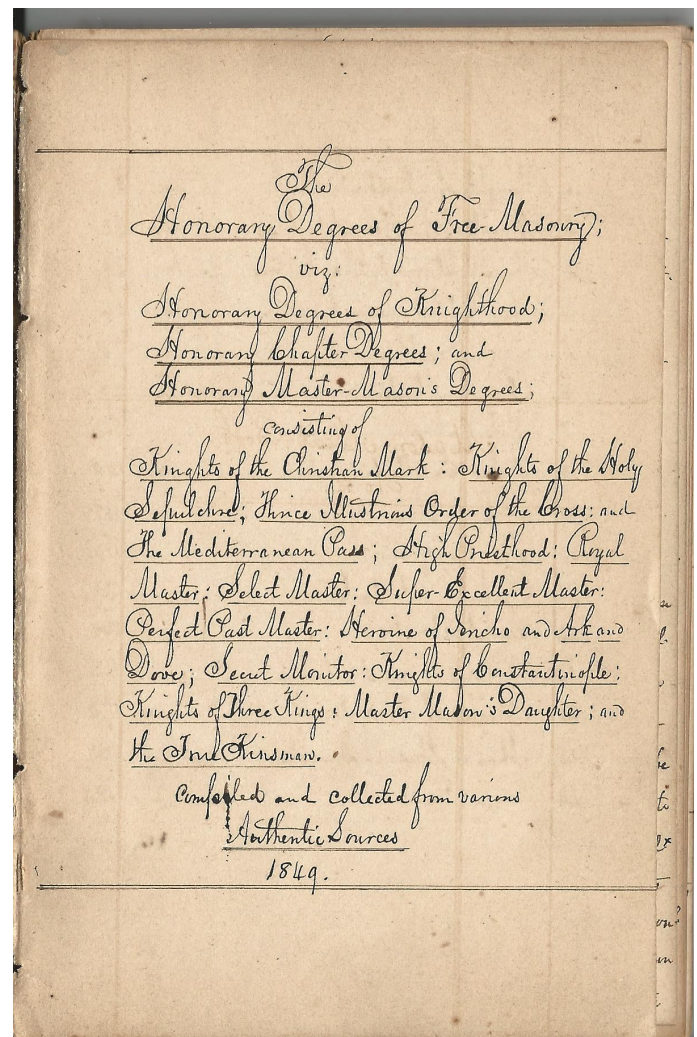 The
Honorary Degrees of Free-Masonry;
viz:
Honorary Degrees of Knighthood;
Honorary Chapter Degrees; and
Honorary Master-Mason's Degrees;
consisting of
Knights of the Christian Mark: Knights of the Holy
Sepulchre; Thrice Illustrious Order of the Cross: and
The Mediterranean Pass; High Priesthood: Royal
Master: Select Master: Super-Excellent Master:
Perfect Past Master: Heroine of Jericho and Ark and
Dove; Secret Monitor: Knights of Constantinople:
Knights of Three Kings: Master Mason's Daughter; and
the True Kinsman.
Compiled and collected from various
Authentic Sources
1849.